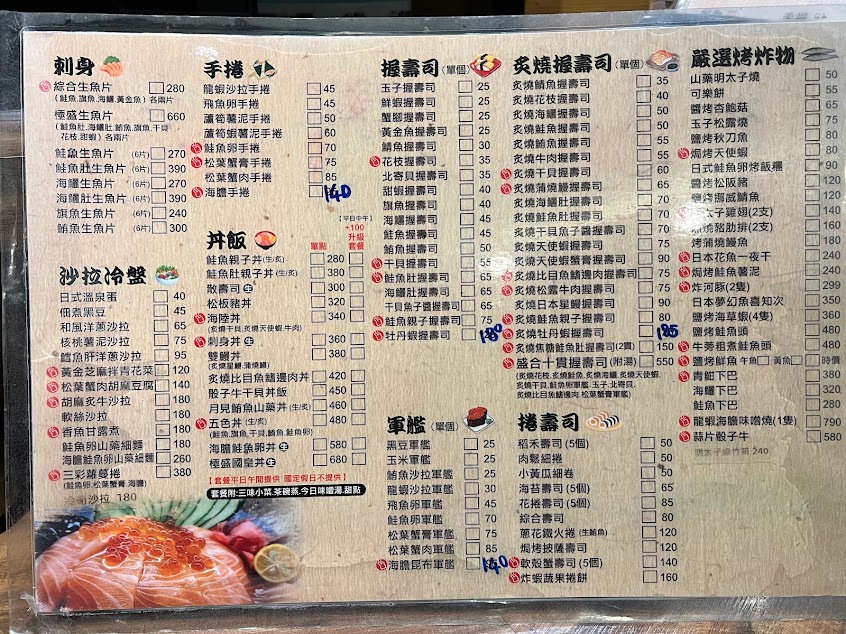 刺身
綜合生魚片 280
(鮭魚,旗魚,海鱺,黃金魚) 各兩片
極盛生魚片 660
(鮭魚肚,海鱺肚,鮪魚,旗魚,干貝
花枝,甜蝦) 各兩片
鮭魚生魚片 (6片) 270
鮭魚肚生魚片 (6片) 390
海鱺生魚片 (6片) 270
海鱺肚生魚片 (6片) 390
旗魚生魚片 (6片) 240
鮪魚生魚片 (6片) 300
沙拉冷盤
日式溫泉蛋 40
佃煮黑豆 45
和風洋蔥沙拉 65
核桃薯泥沙拉 75
鱈魚肝洋蔥沙拉 95
黃金芝麻拌青花菜 120
松葉蟹肉胡麻豆腐 140
胡麻炙牛沙拉 180
軟絲沙拉 180
香魚甘露煮 180
鮭魚卵山藥細麵 180
海膽鮭魚卵山藥細麵 260
三彩蘿蔓捲 380
(鮭魚卵,松葉蟹膏,海膽)
沙拉 180
手捲
龍蝦沙拉手捲 45
飛魚卵手捲 45
蘆筍薯泥手捲 50
蘆筍蝦薯泥手捲 60
鮭魚卵手捲 70
松葉蟹膏手捲 75
松葉蟹肉手捲 85
海膽手捲 140
丼飯
單點
【平日中午】
+100
升級
套餐
鮭魚親子丼(生/炙) 280
鮭魚肚親子丼(生/炙) 380
散壽司 生 300
松板豬丼 320
海陸丼 340
(炙燒干貝,炙燒天使蝦,牛肉)
刺身丼 生 360
雙鰻丼 380
(炙燒星鰻,蒲燒鰻)
炙燒比目魚鰭邊肉丼 420
骰子牛干貝丼飯 450
月見鮪魚山藥丼 (生/炙) 460
五色丼 (生/炙) 480
(鮭魚,旗魚,干貝,鮪魚,鮭魚卵)
海膽鮭魚卵丼 生 580
極盛國皇丼 生 680
【 套餐平日午間提供 國定假日不提供 】
套餐附:三味小菜.茶碗蒸.今日味噌湯.甜點
握壽司 (單個)
玉子握壽司 25
鮮蝦握壽司 25
蟹腳握壽司 25
黃金魚握壽司 30
鯖魚握壽司 30
花枝握壽司 35
北寄貝握壽司 35
甜蝦握壽司 40
旗魚握壽司 40
海鱺握壽司 45
鮭魚握壽司 45
鮪魚握壽司 50
干貝握壽司 55
鮭魚肚握壽司 65
海鱺肚握壽司 65
干貝魚子醬握壽司 65
鮭魚親子握壽司 75
牡丹蝦握壽司 180
軍艦 (單個)
黑豆軍艦 25
玉米軍艦 25
鮪魚沙拉軍艦 25
龍蝦沙拉軍艦 30
飛魚卵軍艦 45
鮭魚卵軍艦 70
松葉蟹膏軍艦 75
松葉蟹肉軍艦 85
海膽昆布軍艦 140
炙燒握壽司 (單個)
炙燒鯖魚握壽司 35
炙燒花枝握壽司 40
炙燒海鱺握壽司 50
炙燒鮭魚握壽司 50
炙燒鮪魚握壽司 55
炙燒牛肉握壽司 55
炙燒干貝握壽司 60
炙燒蒲燒鰻握壽司 65
炙燒鮭魚肚握壽司 70
炙燒干貝魚子醬握壽司 70
炙燒天使蝦握壽司 75
炙燒比目魚鰭邊肉握壽司 90
炙燒松露牛肉握壽司 75
炙燒日本星鰻握壽司 90
炙燒鮭魚親子握壽司 80
炙燒牡丹蝦握壽司 185
炙燒焦糖鮭魚肚握壽司(2貫) 150
盛合十貫握壽司 (附湯) 550
(炙燒花枝,炙燒鮭魚,炙燒海鱺,炙燒天使蝦,
炙燒干貝,鮭魚卵軍艦,玉子,北寄貝,
炙燒比目魚鰭邊肉,松葉蟹膏軍艦)
捲壽司
稻禾壽司 (5個) 50
肉鬆細捲 50
小黃瓜細卷 50
海苔壽司 (5個) 65
花捲壽司 (5個) 85
綜合壽司 80
蔥花鐵火捲 (生鮪魚) 120
焗烤披薩壽司 120
軟殼蟹壽司 (5個) 140
炸蝦蔬果捲餅 160
嚴選烤炸物
山藥明太子燒 50
可樂餅 55
醬烤杏鮑菇 65
玉子松露燒 75
鹽烤秋刀魚 80
焗烤天使蝦 80
日式鮭魚卵烤飯糰 90
醬烤松阪豬 120
鹽烤挪威鯖魚 120
太子雞翅(2支) 140
燒豬肋排(2支) 160
烤蒲燒鰻魚 180
日本花魚一夜干 240
焗烤鮭魚薯泥 240
炸河豚(2隻) 299
日本夢幻魚喜知次 350
鹽烤海草蝦(4隻) 360
鹽烤鮭魚頭 480
牛蒡粗煮鮭魚頭 480
鹽烤鮮魚 午魚 黃魚 時價
青魽下巴 380
海鱺下巴 320
鮭魚下巴 280
龍蝦海膽味噌燒(1隻) 790
蒜片骰子牛 580
明太子綠竹筍 240